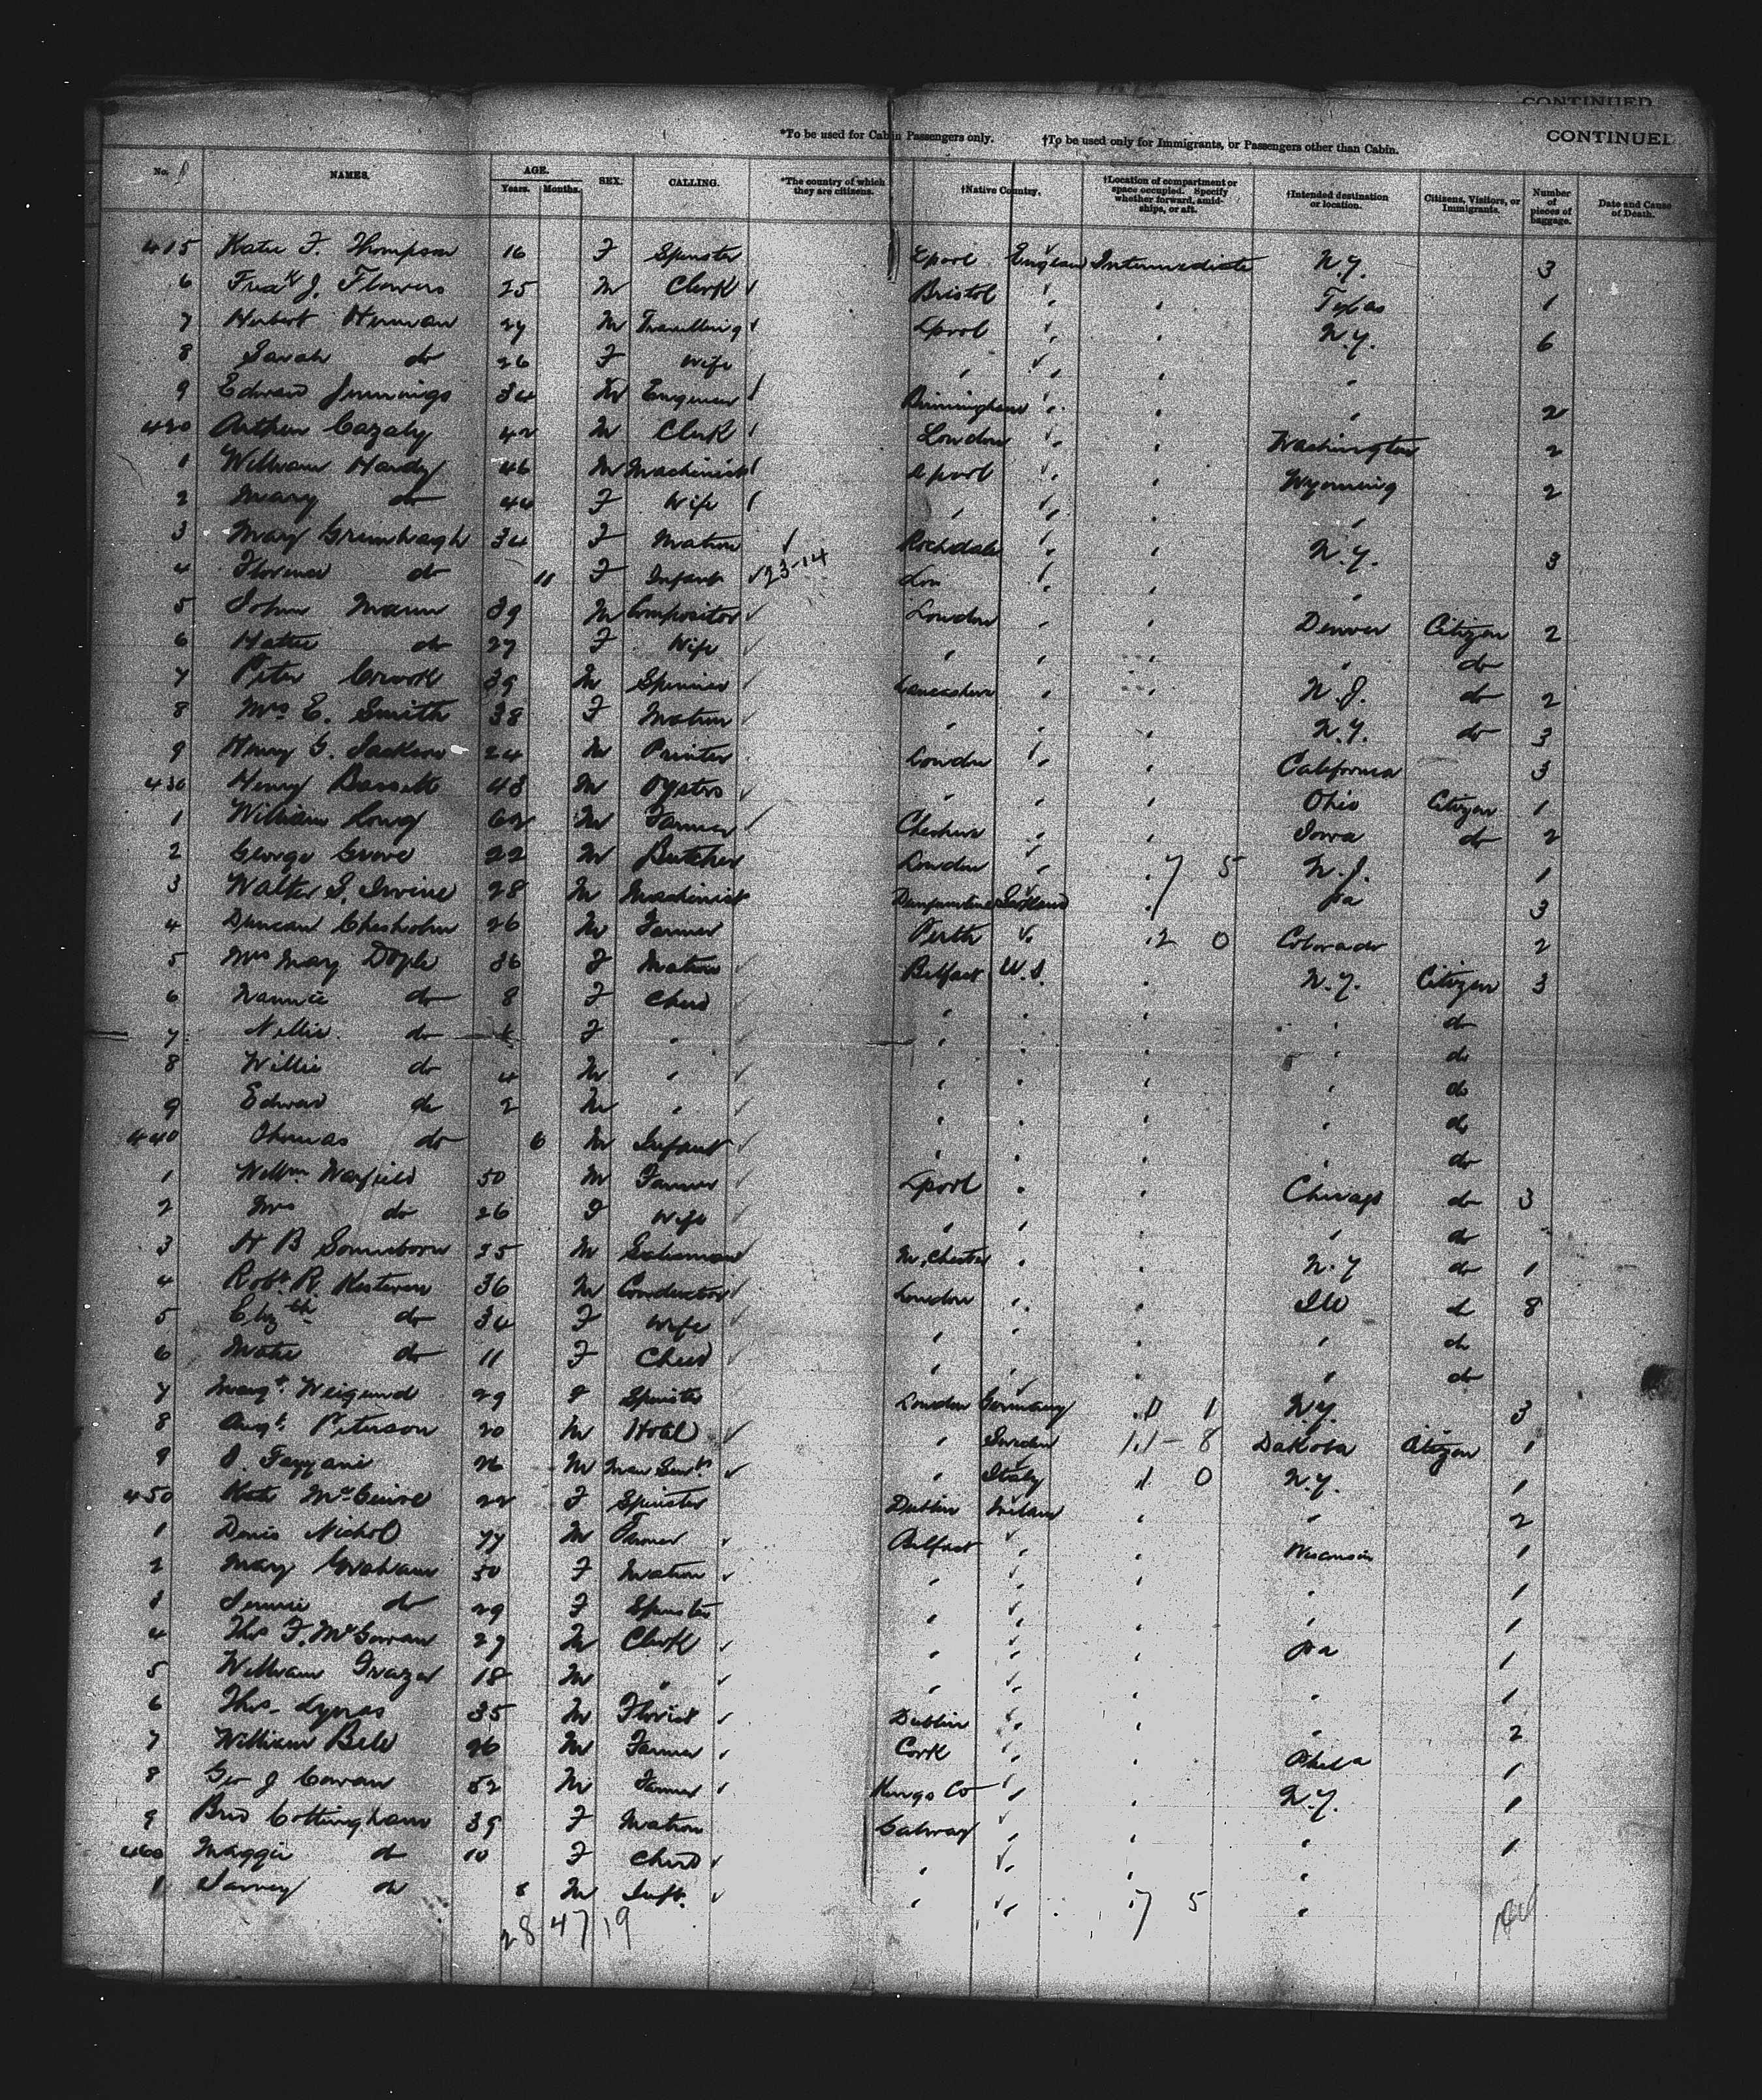 CONTINUED
*To be used for Cabin Passengers only. †To be used only for Immigrants, or Passengers other than Cabin. CONTINUED
No. NAMES. AGE. Years. Months. SEX. CALLING. *The country of which they are citizens. †Native Country. †Location of compartment or space occupied. Specify whether forward, amidships, or aft. †Intended destination or location. Citizens, Visitors, or Immigrants. Number of pieces of baggage. Date and Cause of Death.
415 Katie F. Thompson 16 F Spinster Lpool England Intermediate N.Y. 3
6 Fredk J. Flowers 25 M Clerk Bristol " " Texas 1
7 Herbert Herman 27 M Travelling Lpool " " N.Y. 6
8 Sarah do 26 F Wife " " " "
9 Edward Jennings 34 M Engineer Birmingham " " " 2
420 Arthur Cazaly 42 M Clerk London " " Washington 2
1 William Hardy 46 M Machinist Lpool " " Wyoming 2
2 Mary do 44 F Wife " " " "
3 Mary Grimhaigh 34 F Matron Rochdale " " N.Y. 3
4 Florence do 11 F Infant 23-14 " " "
5 John Mann 39 M Compositor London " " Denver Citizen 2
6 Hattie do 27 F Wife " " " " do
7 Peter Crook 39 M Spinner Lancashire " " N.J. do 2
8 Mrs E. Smith 38 F Matron " " " N.Y. do 3
9 Henry G. Jackson 24 M Printer London " " California 3
430 Henry Bassett 43 M Oysters " " " Ohio Citizen 1
1 William Long 62 M Farmer Cheshire " " Iowa do 2
2 George Grove 22 M Butcher London " " 7 5 N.J. 1
3 Walter S. Irvine 28 M Machinist Dunfermline Scotland " Pa 3
4 Duncan Chisholm 26 M Farmer Perth " " 2 0 Colorado 2
5 Mrs Mary Doyle 36 F Matron Belfast U.S. " N.Y. Citizen 3
6 Nannie do 8 F Child " " " " do
7 Nellie do F " " " " " do
8 Willie do 4 M " " " " " do
9 Edward do 2 M " " " " " do
440 Thomas do 6 M Infant " " " " do
1 Willm Warfield 50 M Farmer Lpool " " Chicago do 3
2 Mrs do 26 F Wife " " " " do
3 H B Sonneborn 25 M Salesman M.Chester " " N.Y do 1
4 Robt R. Kesteven 36 M Conductor London " " Ill do 8
5 Elizth do 34 F Wife " " " " do
6 Matie do 11 F Child " " " " do
7 Margt Weigund 29 F Spinster London Germany " 1 N.Y. 3
8 Augt Peterson 20 M Hotel " Sweden 11-8 Dakota Citizen 1
9 J. Fazzani 26 M Man Servt " Italy 1 0 N.Y. 1
450 Kate McGuire 22 F Spinster Dublin Ireland " " 2
1 Denis Nichol 77 M Farmer Belfast " " Wisconsin 1
2 Mary Graham 50 F Matron " " " " 1
3 Jennie do 29 F Spinster " " " " 1
4 Thos F. McGowan 27 M Clerk " " " Pa 1
5 William Frazer 18 M " " " " " 1
6 Thos Lynas 35 M Florist Dublin " " " 2
7 William Bell 26 M Farmer Cork " " Phila 1
8 Geo J Cowan 52 M Farmer Kings Co " " N.Y. 1
9 Brid Cottingham 39 F Matron Galway " " " 1
460 Maggie do 10 F Child " " " "
1 Harvey do 8 M Inft. " " 7 5 "
28 47 19